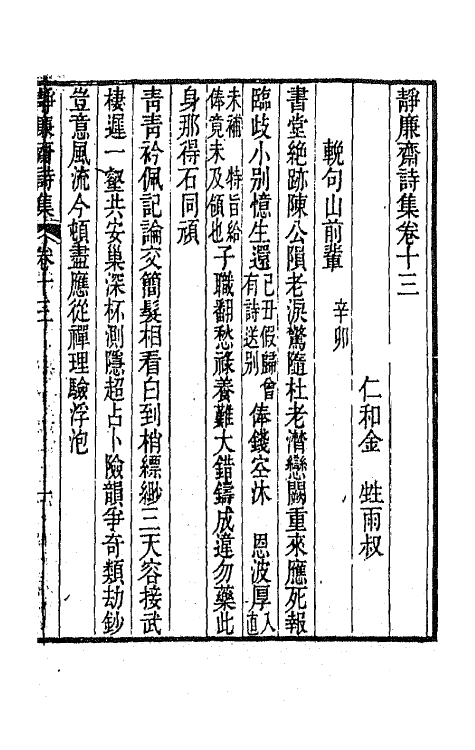 靜廉齋詩集卷十三
仁和金 甡雨叔
輓句山前輩 辛卯
書堂絶跡陳公隕老淚驚隨杜老潸戀闕重來應死報
臨歧小别憶生還己丑假歸曾有詩送别俸錢空沐 恩波厚入直
未補 特旨給俸竟未及領也子職翻愁祿養難大錯鑄成違勿藥此
身那得石同頑
靑靑衿佩記論交簡髮相看白到梢縹緲三天容接武
棲遲一壑共安巢深杯測隱超占卜險韻爭奇類劫鈔
豈意風流今頓盡應從禪理驗浮泡
靜廉齋詩集 卷十三